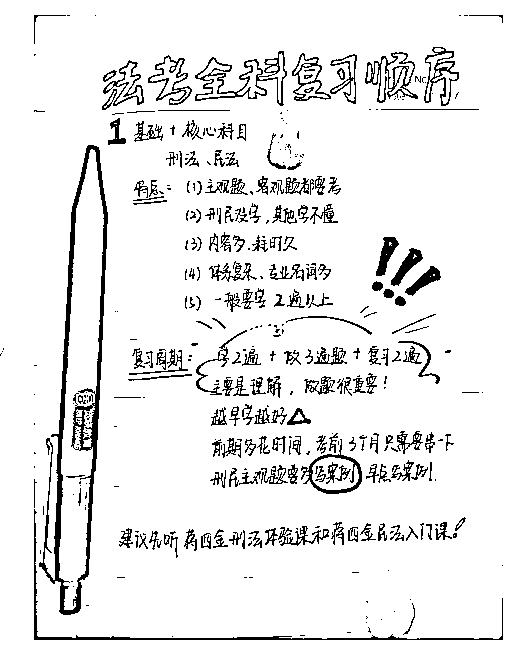 法考全科复习顺序
NO.
1 基础 + 核心科目
刑法、民法
特点：(1) 主观题、客观题都要考
(2) 刑民没学，其他学不懂
(3) 内容多、耗时久
(4) 体系复杂、专业名词多
(5) 一般要学2遍以上
复习周期：学2遍 + 做3遍题 + 复习2遍
主要是理解，做题很重要！
越早学越好
前期多花时间，考前3个月只需要串一下
刑民主观题要多写案例 早点写案例.
建议先听蒋四金刑法体验课和蒋四金民法入门课！